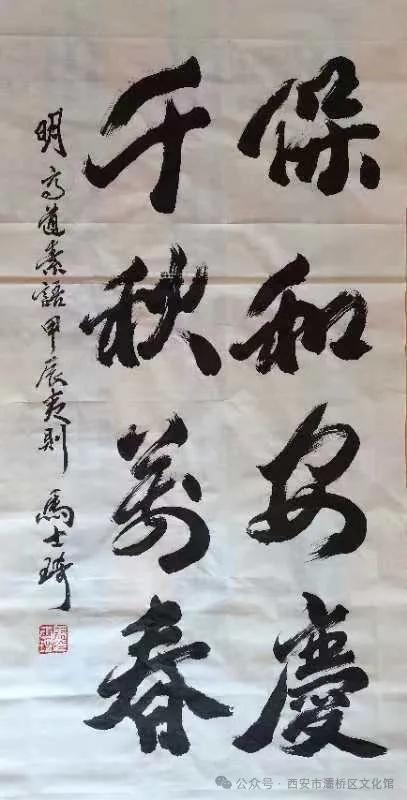 保和安慶
千秋萬春
明高道素語甲辰夷則 馬士琦
公众号 · 西安市灞桥区文化馆